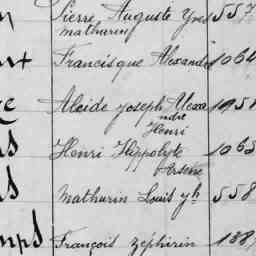 Pierre Auguste Yves 557
mathurin
Francisque Alexandre 1064
Alcide Joseph Alexa
ndre
Henri
Henri Hippolyte 1065
Arsène
Mathurin Louis 558
François Zéphirin 188